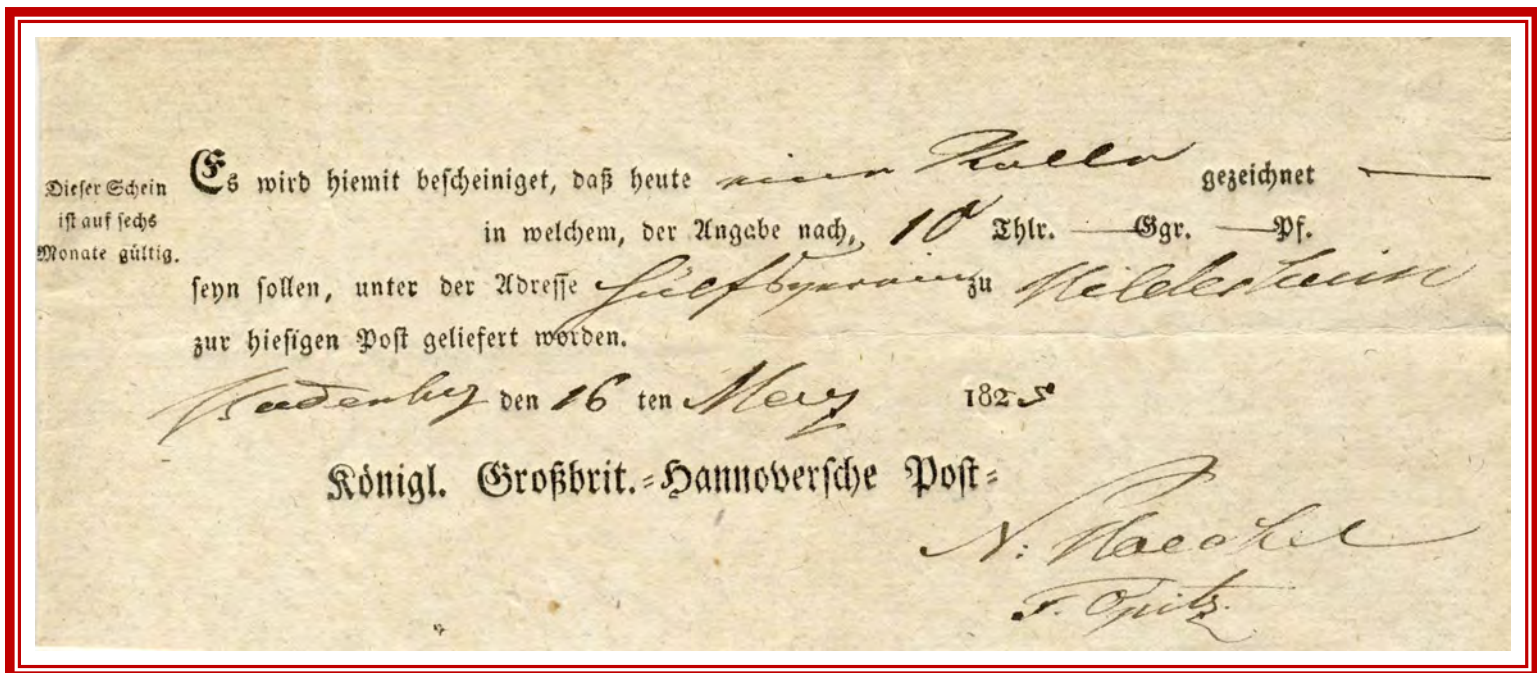 Dieser Schein
ist auf sechs
Monate gültig.
Es wird hiemit bescheiniget, daß heute einen Rolle gezeichnet —
in welchem, der Angabe nach, 10 Thlr. — Ggr. — Pf.
seyn sollen, unter der Adresse Hülfsverein zu Hildesheim
zur hiesigen Post geliefert worden.
den 16 ten Merz 1825
Königl. Großbrit.=Hannoversche Post=
N:
F. Opitz.